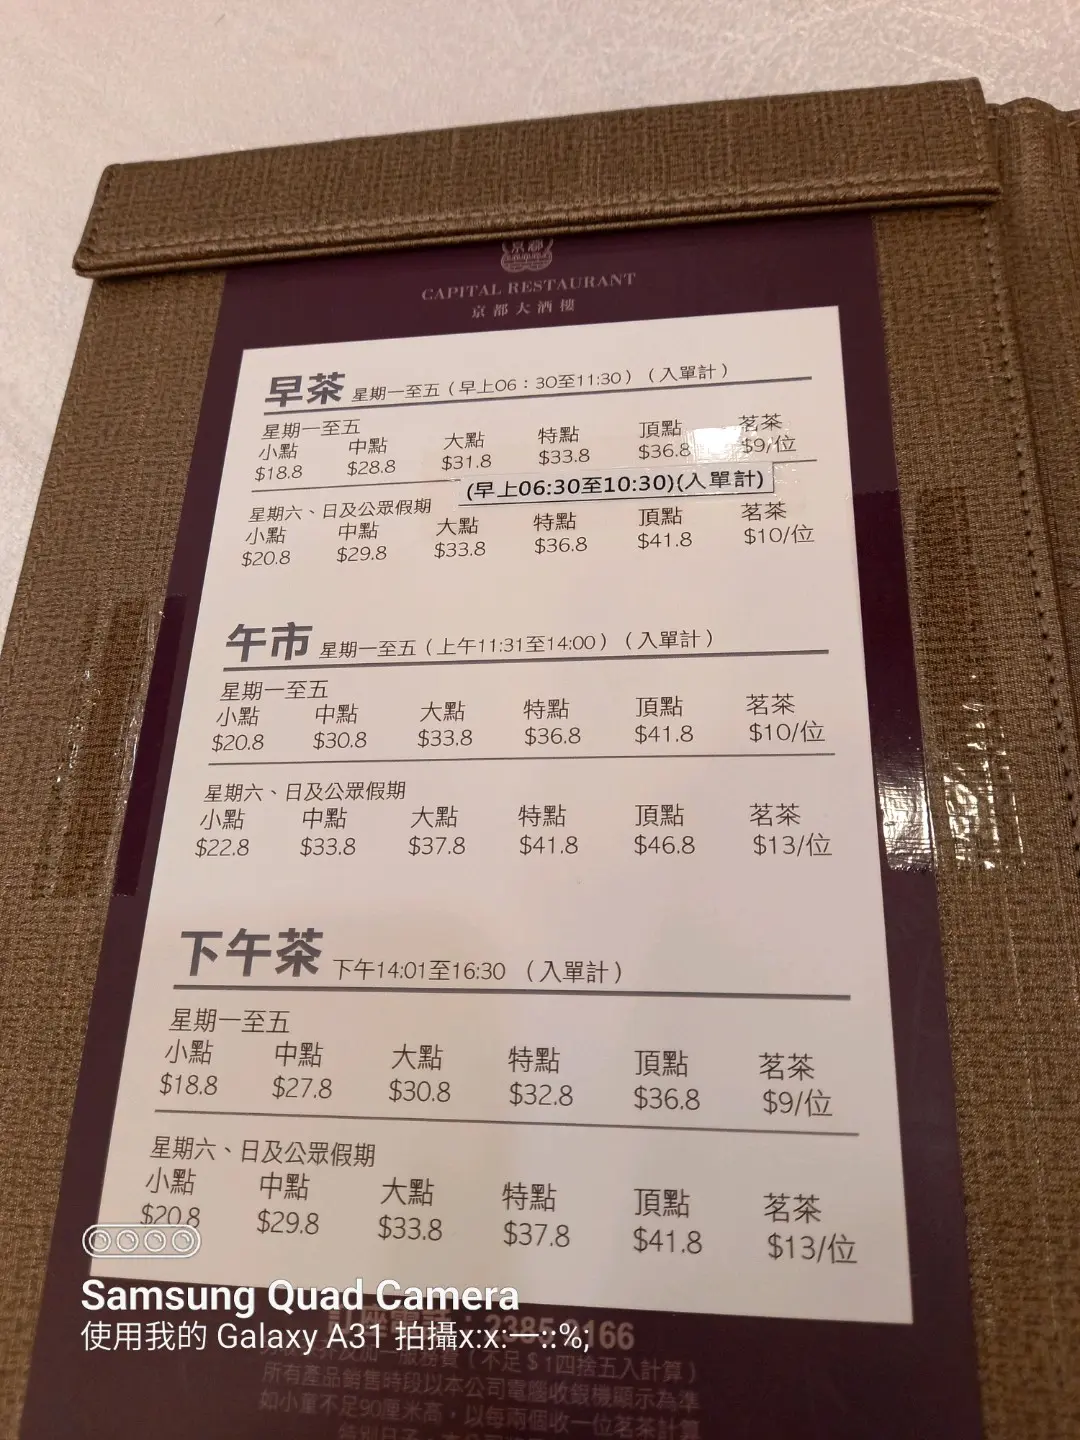 京都
CAPITAL RESTAURANT
京都大酒樓
早茶 星期一至五（早上06：30至11:30）（入單計）
星期一至五
小點 中點 大點 特點 頂點 茗茶
$18.8 $28.8 $31.8 $33.8 $36.8 $9/位
星期六、日及公眾假期 (早上06:30至10:30)(入單計)
小點 中點 大點 特點 頂點 茗茶
$20.8 $29.8 $33.8 $36.8 $41.8 $10/位
午市 星期一至五（上午11:31至14:00）（入單計）
星期一至五
小點 中點 大點 特點 頂點 茗茶
$20.8 $30.8 $33.8 $36.8 $41.8 $10/位
星期六、日及公眾假期
小點 中點 大點 特點 頂點 茗茶
$22.8 $33.8 $37.8 $41.8 $46.8 $13/位
下午茶 下午14:01至16:30 （入單計）
星期一至五
小點 中點 大點 特點 頂點 茗茶
$18.8 $27.8 $30.8 $32.8 $36.8 $9/位
星期六、日及公眾假期
小點 中點 大點 特點 頂點 茗茶
$20.8 $29.8 $33.8 $37.8 $41.8 $13/位
Samsung Quad Camera
使用我的 Galaxy A31 拍攝x:x:一::%;
加一服務費（不足＄1四捨五入計算）
所有產品銷售時段以本公司電腦收銀機顯示為準
如小童不足90厘米高，以每兩個收一位茗茶計算